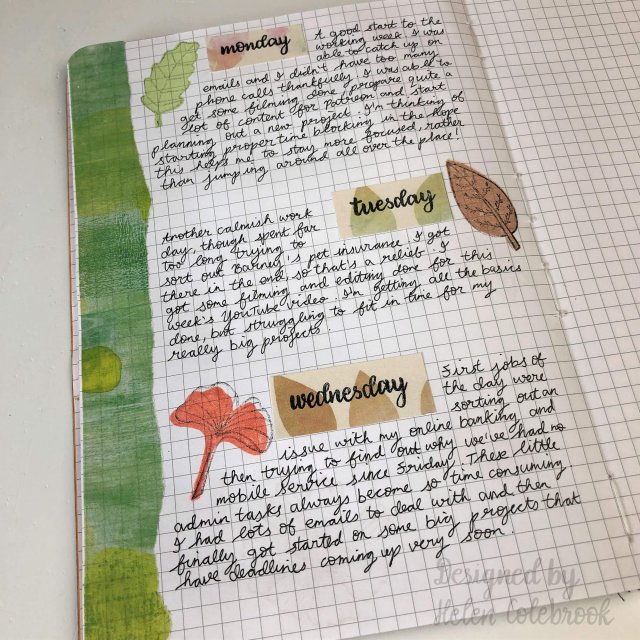 monday
A good start to the
working week. I was
able to catch up on
emails and I didn't have too many
phone calls thankfully. I was able to
get some filming done, prepare quite a
lot of content for Patreon and start
planning out a new project. I'm thinking of
starting proper time blocking in the hope
this helps me to stay more focused, rather
than jumping around all over the place!
tuesday
Another calmish work
day, though spent far
too long trying to
sort out Barney's pet insurance. I got
there in the end, so that's a relief. I
got some filming and editing done for this
week's YouTube video. I'm getting all the basics
done, but struggling to fit in time for my
really big projects.
wednesday
First jobs of
the day were
sorting out an
issue with my online banking and
then trying to find out why we've had no
mobile service since Friday. These little
admin tasks always become so time consuming
I had lots of emails to deal with and then
finally got started on some big projects that
have deadlines coming up very soon
Designed by
Helen Colebrook